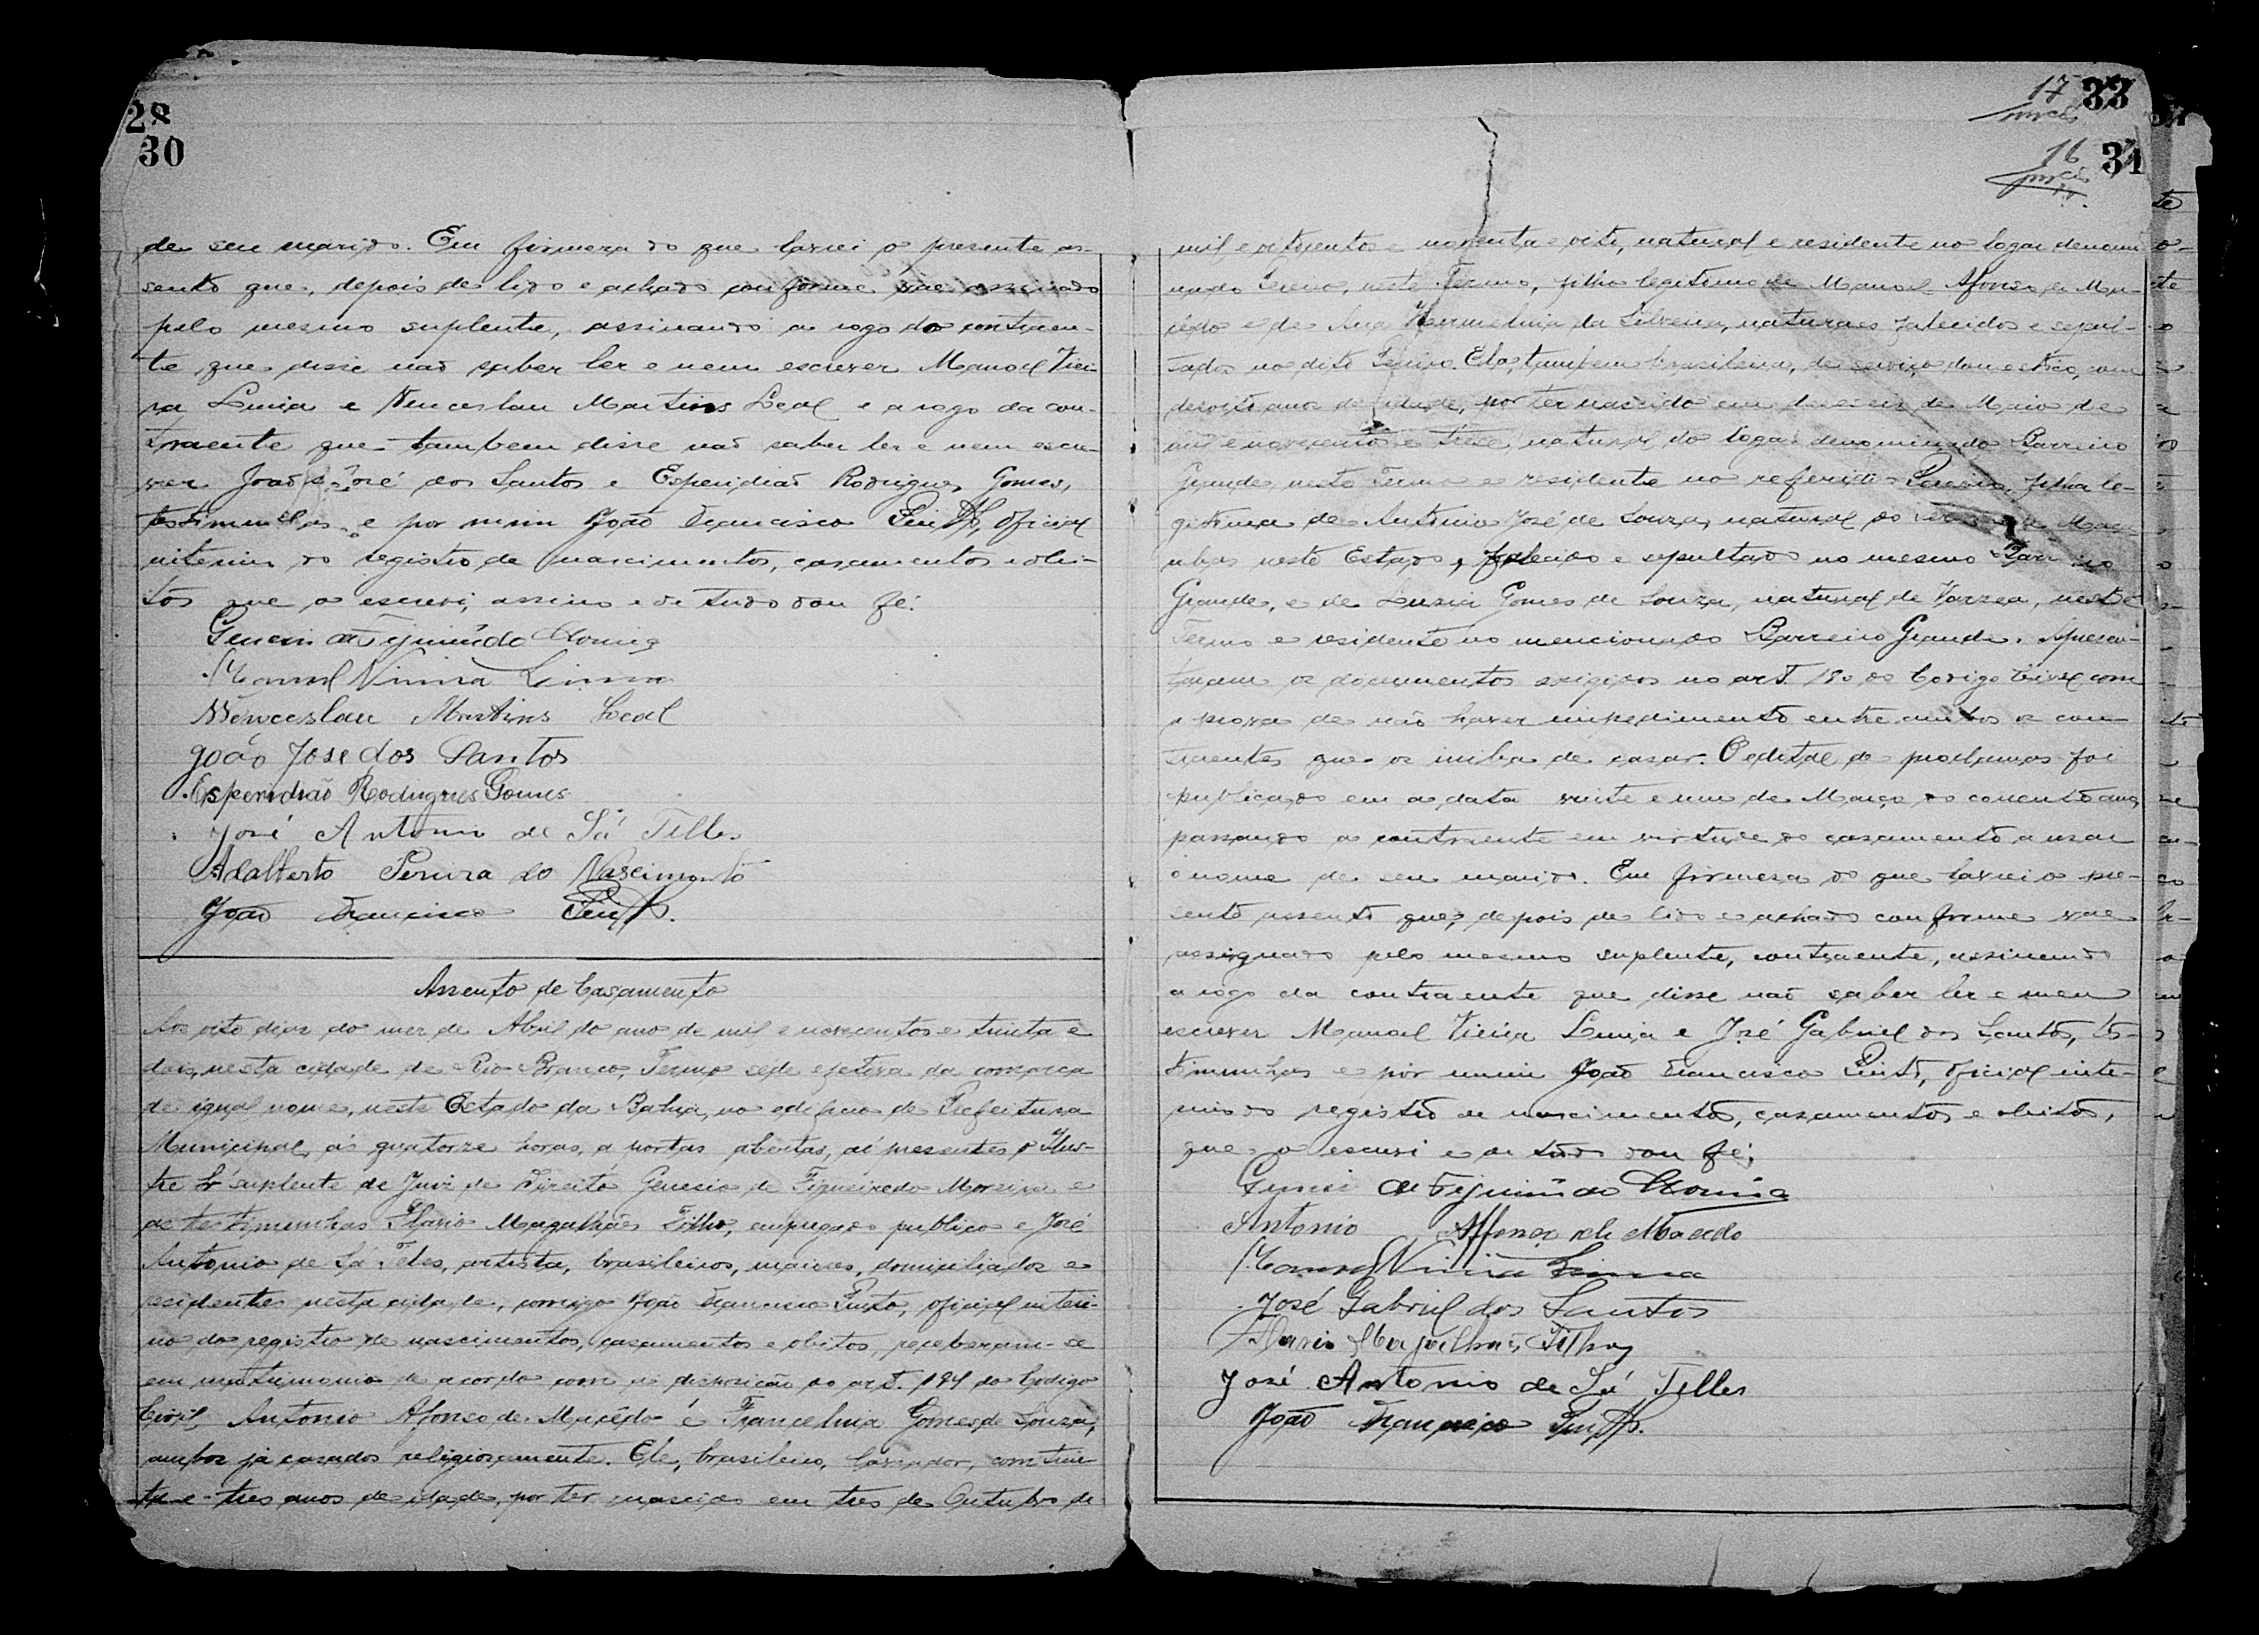 28
30
de seu marido. Em firmeza do que lavrei o presente as-
sento que, depois de lido e achado conforme, vae assinado
pelo mesmo suplente, assinando a rogo do contraen-
te que disse não saber ler e nem escrever Manoel Viei-
ra Lima e Wenceslau Martins Leal e a rogo da con-
traente que tambem disse não saber ler e nem escre-
ver João José dos Santos e Esperidião Rodrigues Gomes,
testimunhas e por mim João Francisco Pinto, oficial
interino do registro de nascimentos, casamentos e obi-
tos que o escrevi, assino e de tudo dou fé.
Genesio de Figueirêdo Moreira
Manoel Vieira Lima
Wenceslau Martins Leal
João José dos Santos
Esperidião Rodrigues Gomes
José Antonio de Sá Telles
Adalberto Pereira do Nascimento
João Francisco Pinto.
Assento de Casamento
Aos oito dias do mez de Abril do ano de mil e novecentos e trinta e
dois, nesta cidade de Rio Branco, Termo séde efetiva da comarca
de igual nome, neste Estado da Bahia, no edeficio de Prefeitura
Municipal, ás quatorze horas, a portas abertas, aí presentes o Ilus-
tre Sr. suplente de Juiz de Direito Genesio de Figueiredo Moreira e
as testimunhas Ilario Magalhães Filho, empregado publico e José
Antonio de Sá Teles, artista, brasileiros, maiores, domiciliados e
residentes nesta cidade, comigo João Francisco Pinto, oficial interi-
no do registro de nascimentos, casamentos e obitos, receberam-se
em matrimonio de acordo com a disposição do art. 194 do Codigo
Civil, Antonio Afonso de Macêdo e Francelina Gomes de Souza,
ambos já casados religiosamente. Ele, brasileiro, lavrador, com trin-
ta e tres anos de idade, por ter nascido em tres de Outubro de
17 33
16 31
mil e oitocentos e noventa e oito, natural e residente no logar denomi-
nado neste Termo, filho legitimo de Manoel Afonso de Ma-
cêdo e de Ana Hermelina da Silveira, naturaes falecidos e sepul-
tados no dito Ela, tambem brasileira, de serviço domestico, com
dezoito anos de idade, por ter nascido em de Maio de
mil e novecentos e treze, natural do logar denominado Barreiro
Grande, neste Termo e residente no referido filha le-
gitima de Antonio José de Souza, natural do
nhas neste Estado, falecido e sepultado no mesmo Barreiro
Grande, e de Luzia Gomes de Souza, natural de Varzea, neste
Termo e residente no mencionado Barreiro Grande. Apresen-
taram os documentos exigidos no art. 180 do Codigo Civil com
a prova de não haver impedimento entre ambos os con-
traentes que os iniba de casar. O edital de proclamas foi
publicado em a data vinte e um de Março do corrente ano,
passando a contraente em virtude do casamento a usar
o nome de seu marido. Em firmesa do que lavrei o pre-
sente assento que, depois de lido e achado conforme vae
assignado pelo mesmo suplente, contraente, assinando
a rogo da contraente que disse não saber ler e nem
escrever Manoel Vieira Lima e José Gabriel dos Santos, tes-
timunhas e por mim João Francisco Pinto, oficial inte-
rino do registro de nascimentos, casamentos e obitos,
que o escrevi e de tudo dou fé.
Genesio de Figueirêdo Moreira
Antonio Affonso de Macedo
Manoel Vieira Lima
José Gabriel dos Santos
Ilario Magalhães Filho
José Antonio de Sá Telles
João Francisco Pinto.